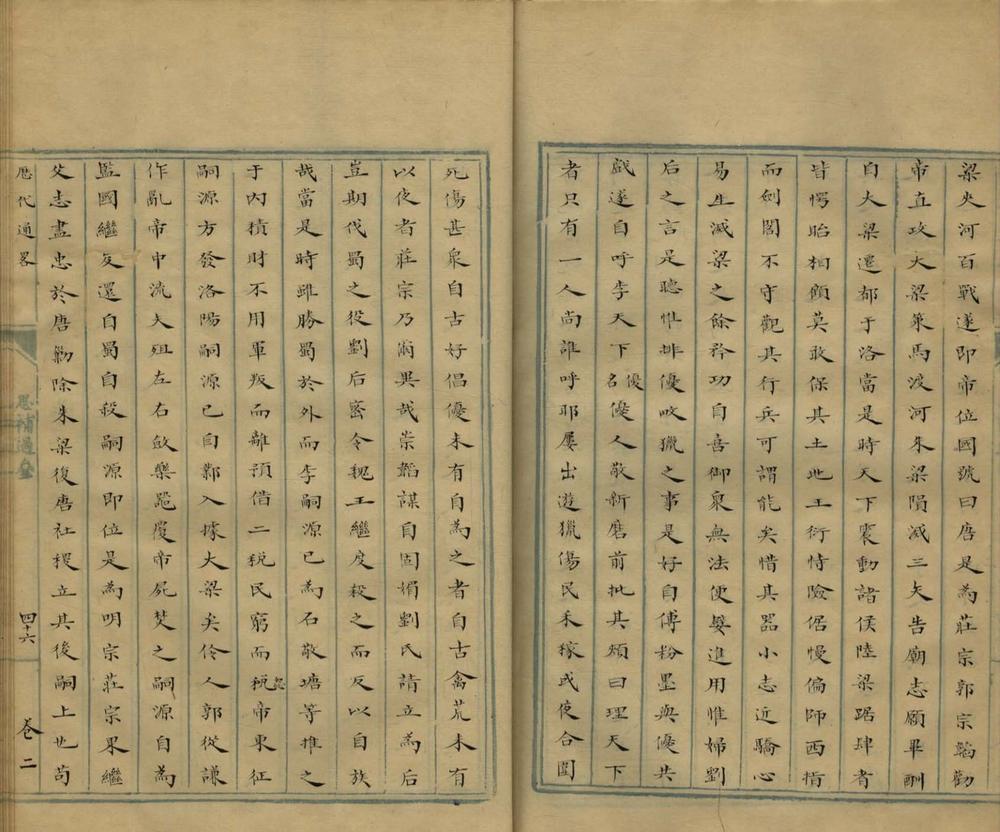 梁夾河百戰遂即帝位國號曰唐是為莊宗郭宗韜勸
帝直攻大梁策馬渡河朱梁隕滅三矢告廟志願畢酬
自大梁遷都于洛當是時天下震動諸侯陸梁踞肆者
皆愕眙相顧莫敢保其土地王衍恃險倨慢偏師西指
而劍閣不守觀其行兵可謂能矣惜其器小志近驕心
易生滅梁之餘矜功自喜御眾無法便嬖進用惟婦劉
后之言是聽惟排優畋獵之事是好自傅粉墨與優共
戲遂自呼李天下優名優人敬新磨前批其頰曰理天下
者只有一人尚誰呼耶屢出遊獵傷民禾稼或使合圍
死傷甚眾自古好倡優未有自為之者自古禽荒未有
以夜者莊宗乃兩異哉崇韜謀自固媚劉氏請立為后
豈期伐蜀之役劉后密令魏王繼岌殺之而反以自族
哉當是時雖勝蜀於外而李嗣源已為石敬塘等推之
于內積財不用軍叛而離預借二稅民窮而稅怨帝東征
嗣源方發洛陽嗣源已自鄴入據大梁矣伶人郭從謙
作亂帝中流矢殂左右斂樂噐覆帝屍焚之嗣源自為
監國繼岌還自蜀自殺嗣源即位是為明宗莊宗果繼
父志盡忠於唐勦除朱梁復唐社稷立其後嗣上也苟
歷代通畧
思補過齋
四十六
卷二